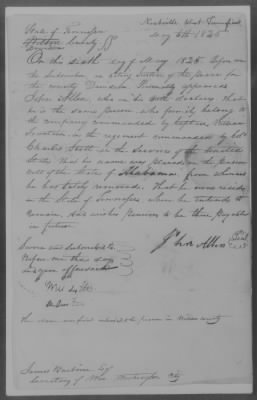 Nashville West Tennessee
May 6th 1825
State of Tennessee
County
On this sixth day of May 1825 Before me
the Subscriber a acting Justice of the peace for
the county Davidson Personally appeared
John Allen, who on his oath declares that
he is the same person who formerly belonged to
the company commanded by Captain William
in the regiment commanded by Col
Charles Scott in the Service of the United
States that his name was placed on the pension
roll of the State of Alabama from whence
he has lately removed. That he now resides
in the State of Tennessee where he intends to
remain, and wishes Pension to be there payable
in future
Sworn and Subscribed to
Before me this day
and year aforesaid
John Allen
Seal
the above in Wilson county
James Barbour Esq
Secretary of War Washington City